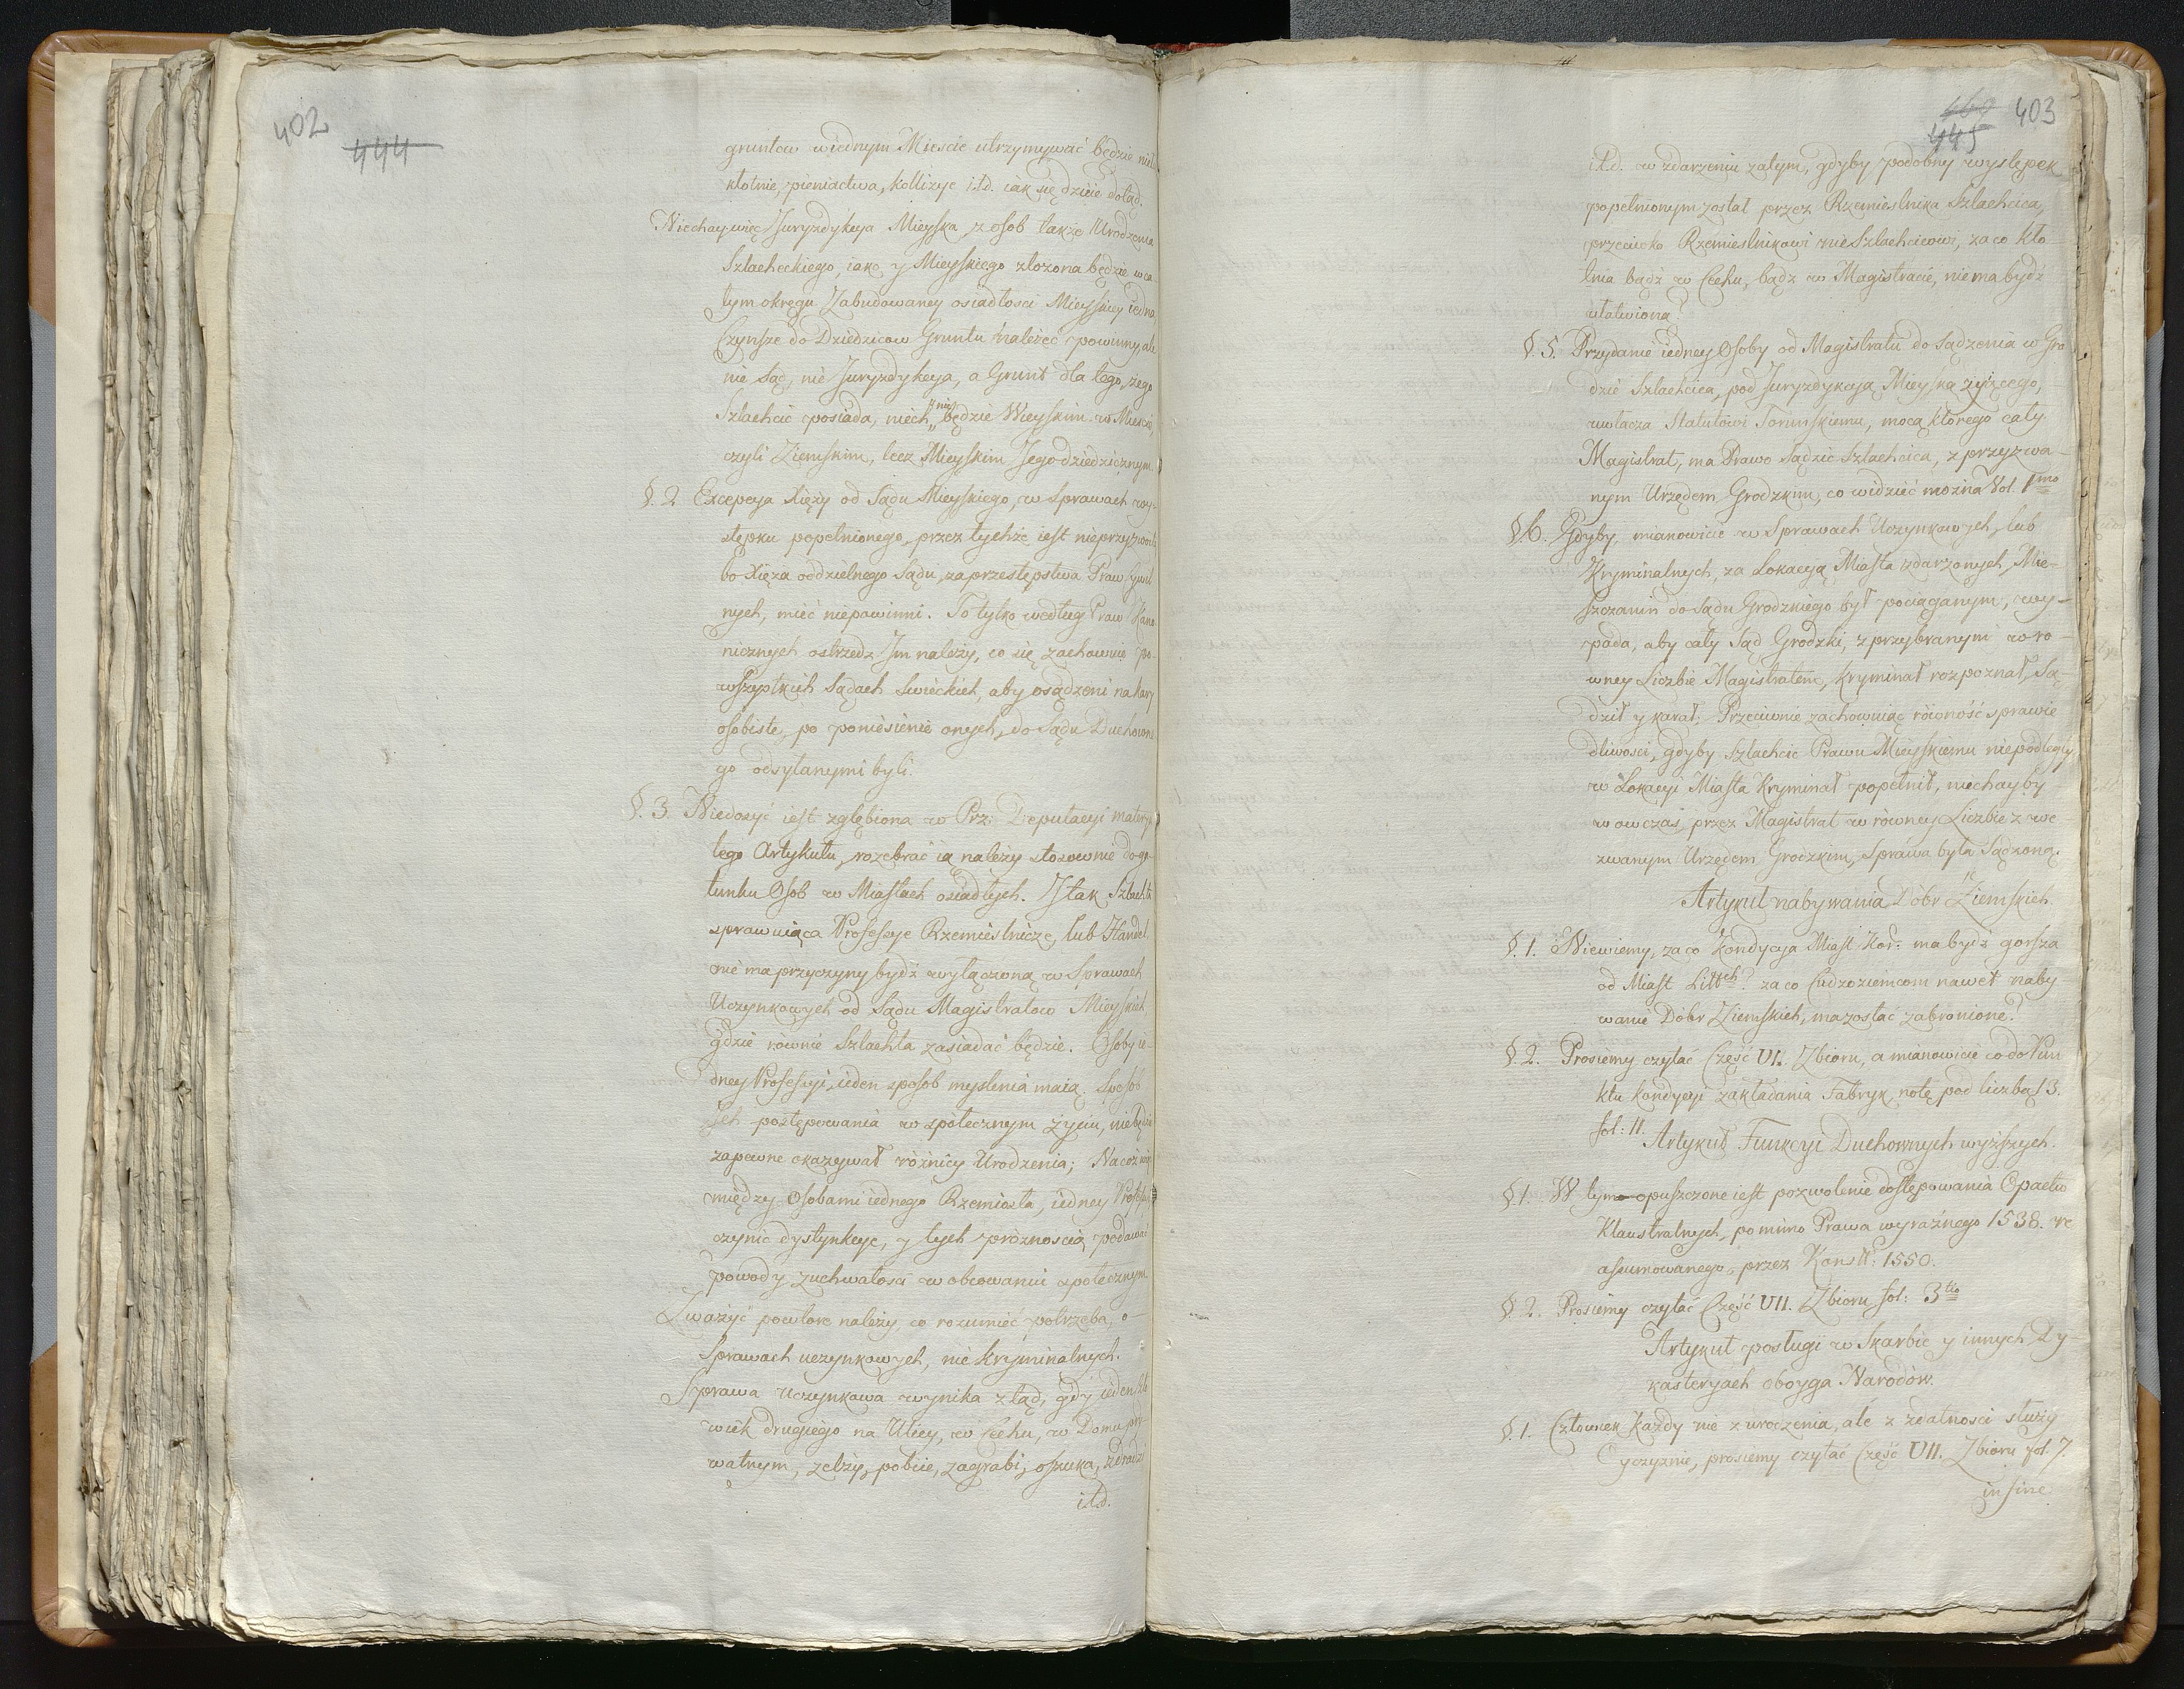 402
444
gruntow wiednym Mieście utrzymywać będzie
kłotnie, pieniactwa, kollizye itd. iak się dzieie dotąd.
Niechay więc Juryzdykcya Mieyska z osob także Urodzenia
Szlacheckiego, iako y Mieyskiego złożona będzie w ca-
łym okręgu Zabudowaney osiadłosci Mieyskiey iedna,
Czynsze do Dziedzicow Gruntu należeć powinny, ale
nie Sąd, nie Juryzdykcya, a Grunt dla tego, że go
Szlachcic posiada, niech y nie będzie Wieyskim w Mieście,
czyli Ziemskim, lecz Mieyskim Jego dziedzicznym.
§. 2 Excepcya Xięży od Sądu Mieyskiego, w Sprawach wy-
stępku popełnionego, przez tychże iest nieprzyzwoita
bo Xięża oddzielnego Sądu, za przestępstwa Praw Cywil
nych, mieć niepowinni. To tylko według Praw Kano
nicznych ostrzedz Im należy, co się zachowuie po-
wszystkich Sądach Swieckich, aby osądzeni na kary
osobiste, po poniesienie onych, do Sądu Duchowne
go odsyłanymi byli.
§. 3. Niedosyć iest zgłębiona w Prz: Deputacyi materya
tego Artykułu, rozebrać ią należy stosownie do ga-
tunku Osob w Miastach osiadłych. I tak Szlachta
sprawuiąca Professye Rzemieslnicze, lub Handel
nie ma przyczyny bydź wyłączoną w Sprawach
Uczynkowych od Sądu Magistratow Mieyskich,
gdzie rownie Szlachta zasiadać będzie. Osoby ie-
dney Professyi, ieden sposob myslenia maią. Sposob
Ich postępowania w społecznym życiu, nie będzie
zapewne okazywał różnicy Urodzenia; Na coż więc
między Osobami iednego Rzemiosła, iedney Professyi
czynić dystynkcye, y tych próżnoscią podawać
powody zuchwałosci w obcowaniu społecznym
Zważyć powtore należy, co rozumieć potrzeba, o-
Sprawach uczynkowych, nie kryminalnych.
Sprawa Uczynkowa wynika z tąd, gdy ieden Czło
wiek drugiego na Ulicy, w Cechu, w Domu pry-
watnym, zelży, pobiie, zagrabi, oszuka, zdradzi
itd.
469 403
445
itd. w zdarzeniu zatym, gdyby podobny występek
popełnionym został przez Rzemieslnika Szlachcica,
przeciwko Rzemieslnikowi nie Szlachcicowi, za co kło-
tnia bądź w Cechu, bądz w Magistracie, nie ma bydź
ułatwiona?
§. 5. Przydanie iedney Osoby od Magistratu do Sądzenia w Gro
dzie Szlachcica, pod Juryzdykcyą Mieyską żyiącego,
uwłacza Statutowi Toruńskiemu, mocą ktorego cały
Magistrat, ma Prawo Sądzić Szlachcica, z przyzwa-
nym Urzędem Grodzkim, co widzieć można Vol. 1mo
§ 6. Gdyby, mianowicie w Sprawach Uczynkowych, lub
Kryminalnych, za Lokacyą Miasta zdarzonych, Mie-
szczanin do Sądu Grodzkiego był pociąganym, wy-
pada, aby cały Sąd Grodzki, z przybranym w ro-
wney Liczbie Magistratem, kryminał rozpoznał, Są-
dził y karał; Przeciwnie zachowuiąc równość sprawie
dliwosci, gdyby Szlachcic Prawu Mieyskiemu niepodległy
w Lokacyi Miasta Kryminał popełnił, niechayby
w owczas, przez Magistrat w równey Liczbie z we
zwanym Urzędem Grodzkim, Sprawa była Sądzoną.
Artykuł nabywania Dóbr Ziemskich
§. 1. Niewiemy, za co Kondycya Miast Kor: ma bydź gorsza
od Miast Littch? za co Cudzoziemcom nawet naby
wanie Dóbr Ziemskich, ma zostać zabronione?
§. 2. Prosiemy czytać Część VII. Zbioru, a mianowicie co do Pun
ktu Kondycyi zakładania Fabryk, notę pod liczbą 13.
fol: 11.
Artykuł Funkcyi Duchownych wyższych.
§. 1. W tym opuszczone iest pozwolenie dostępowania Opactw
Klaustralnych, pomimo Prawa wyraźnego 1538. re
assumowanego, przez Konstt: 1550.
§. 2. Prosiemy czytać Część VII. Zbioru fol: 3tio
Artykuł posługi w Skarbie y innych Dy-
kasteryach oboyga Narodów.
§. 1. Człowiek każdy nie z urodzenia, ale z zdatnosci służy
Oyczyznie, prosiemy czytać Część VII. Zbioru fol. 7.
in fine